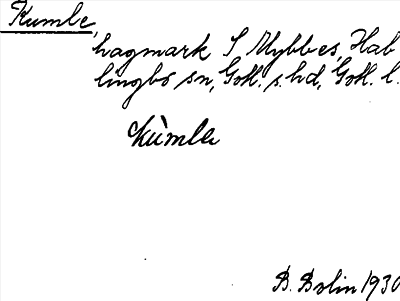 Kumle,
hagmark S Nybbes, Hab
lingbo sn, Gotl. s. hd, Gotl. l.
Kùmla
B. Bolin 1930